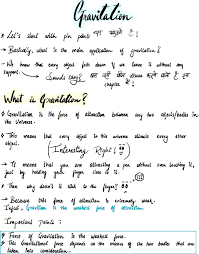 Gravitation
* Let's start with pin point क्या कहते हैं!
→ Basically, what is the main application of gravitation?
→ We know that every object falls down if we leave it without any
support. Sounds easy? क्या
chapter!
What is Gravitation?
* Gravitation is the force of attraction between any two objects/bodies in
the Universe.
→ This means that every object in this universe attracts every other
object. (Interesting, Right!)
→ It means that you are attracting a pen without even touching it,
just by holding your finger close to it.
→ Then why doesn't it stick to the finger?
→ Because this force of attraction is extremely weak.
Infact, Gravitation is the weakest force of attraction.
Important points:
* Force of Gravitation is the weakest force.
* This Gravitational force depends on the masses of the two bodies that are
taken into consideration.